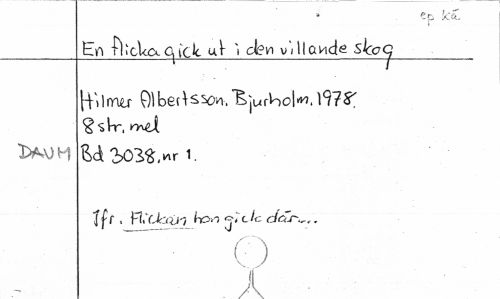 ep kä
En flicka gick ut i den villande skog
Hilmer Albertsson, Bjurholm, 1978.
8 str, mel
DAUM Bd 3038, nr 1.
Jfr. Flickan hon gick där...